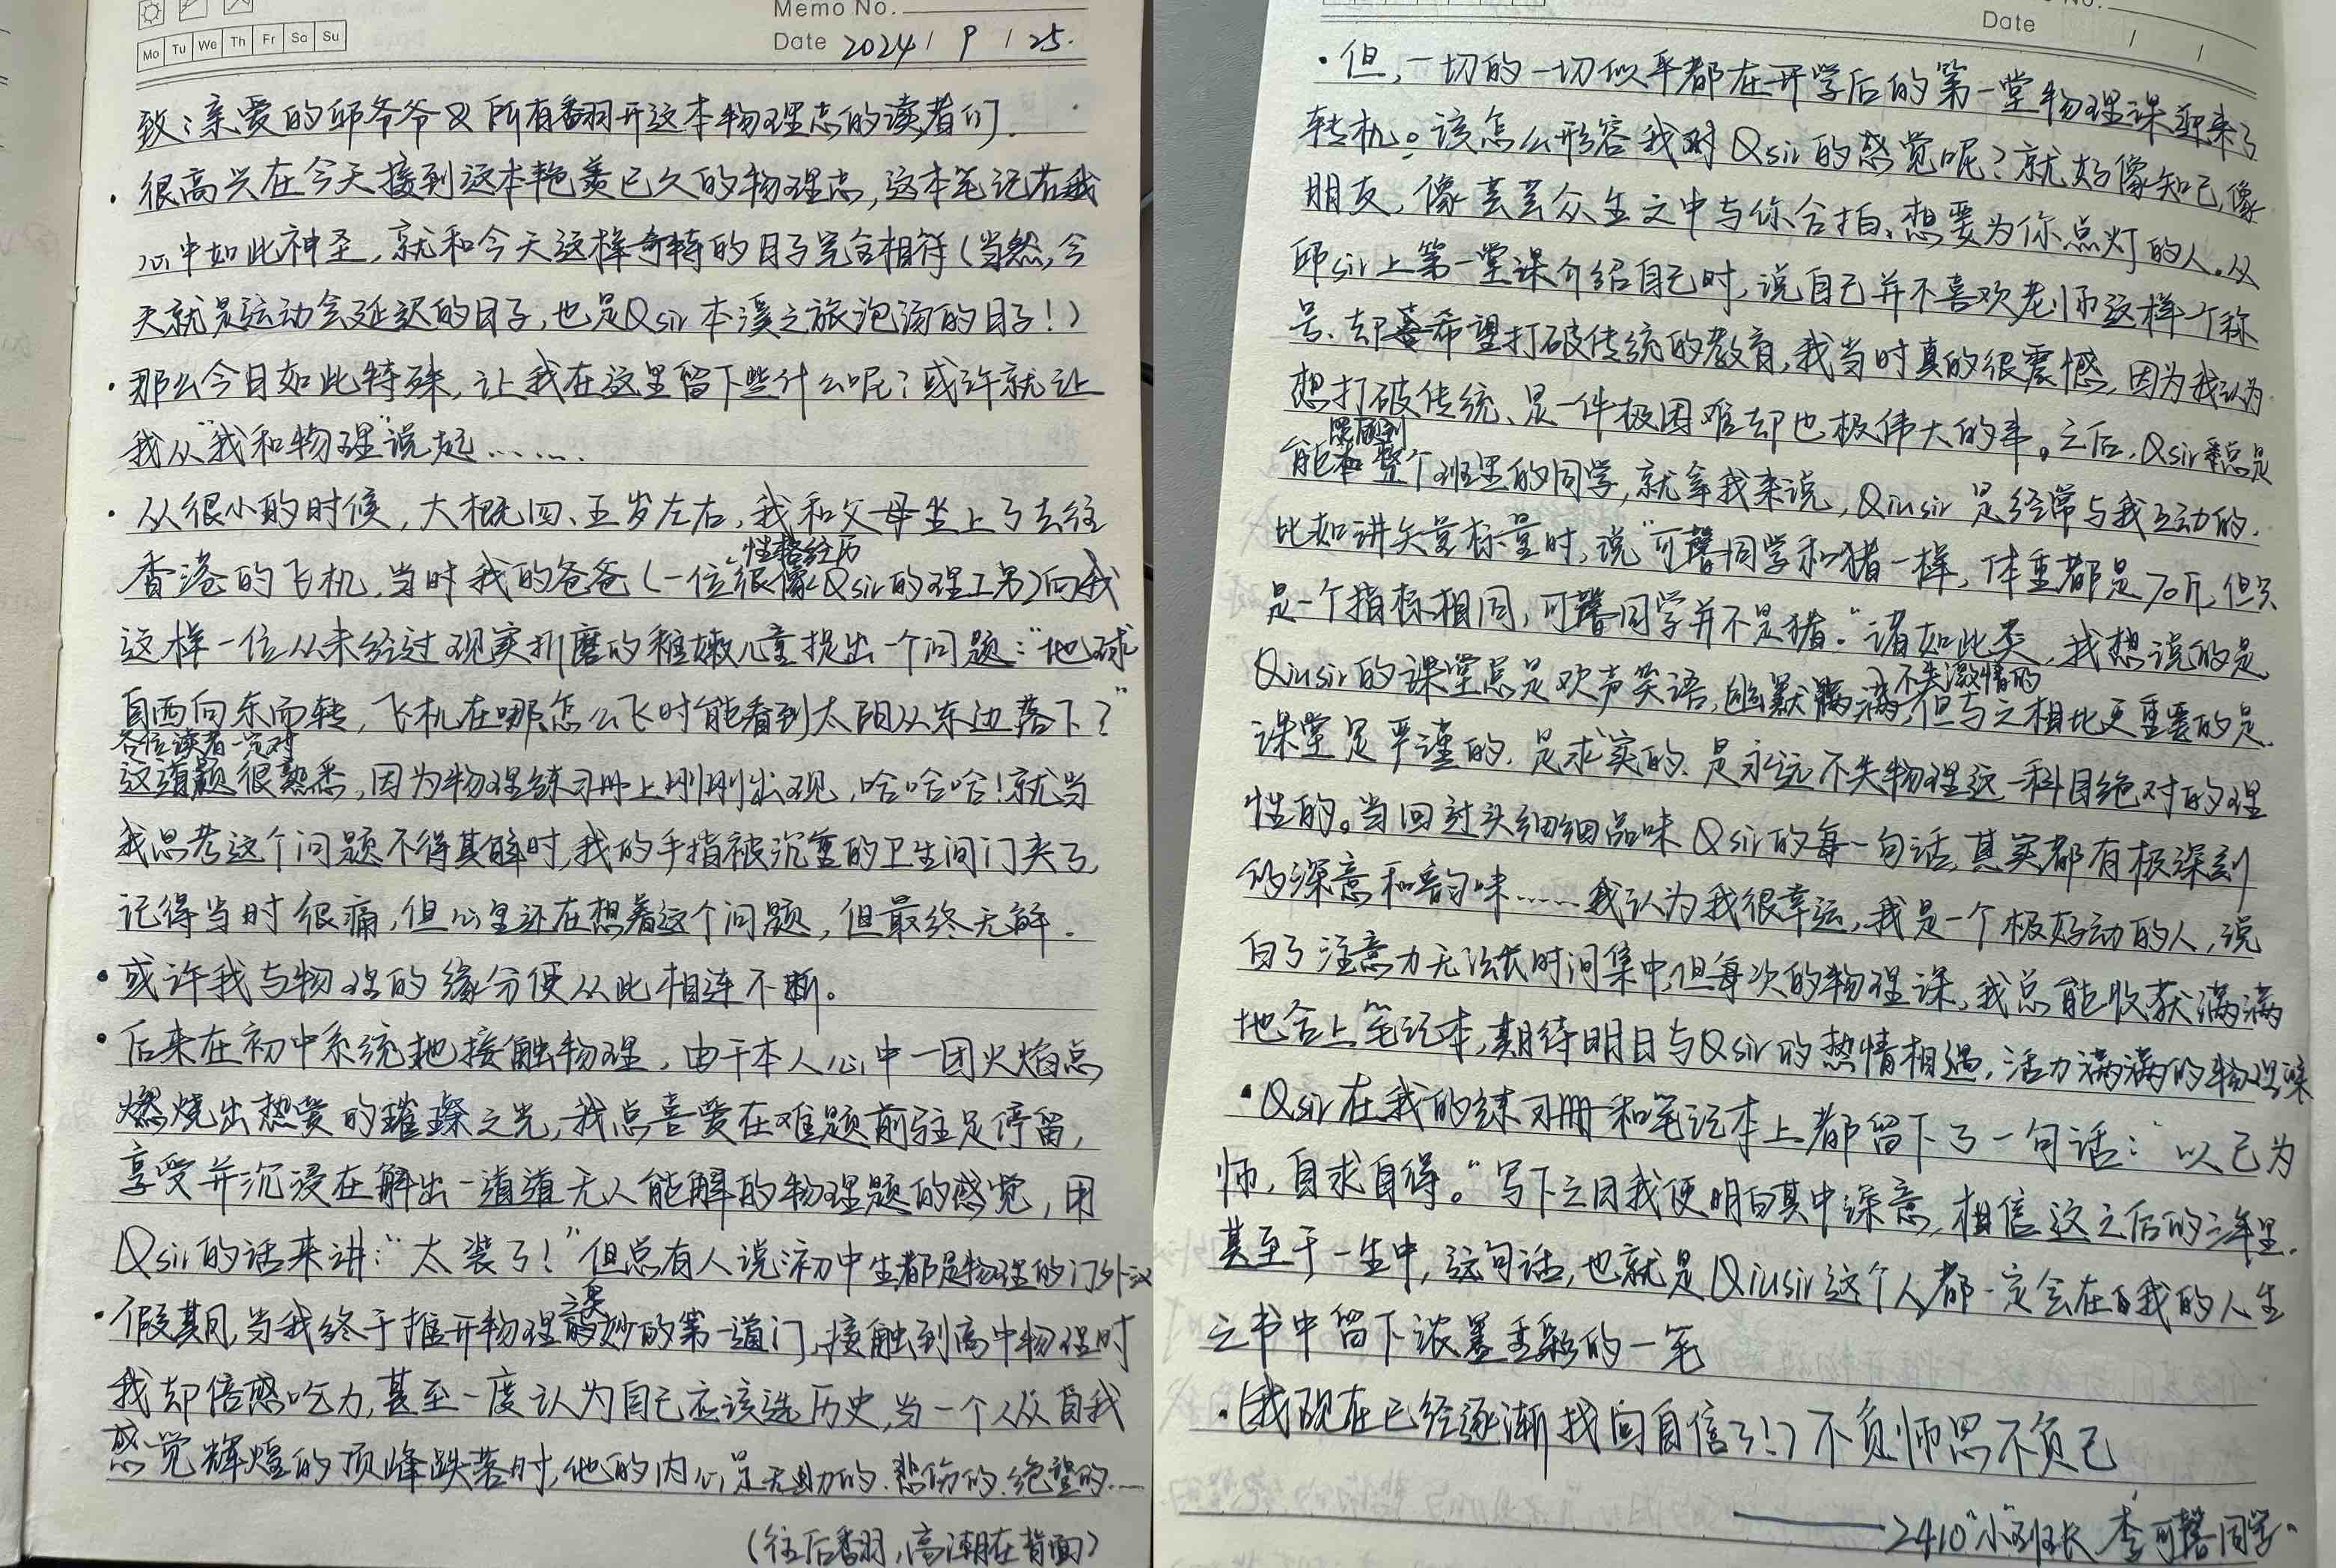 Memo No.
Mo Tu We Th Fr Sa Su
Date 2024 / 9 / 25.
致：亲爱的邱爷爷及所有翻开这本物理志的读者们.
· 很高兴在今天接到这本艳羡已久的物理志，这本笔记在我
心中如此神圣，就和今天这样奇特的日子完全相符（当然，今
天就是运动会延迟的日子，也是Qsir本溪之旅泡汤的日子！）
· 那么今日如此特殊，让我在这里留下些什么呢？或许就让
我从“我和物理”说起……
· 从很小的时候，大概四、五岁左右，我和父母坐上了去往
香港的飞机，当时我的爸爸（一位性格经历很像Qsir的理工男）向我
这样一位从未经过现实折磨的稚嫩儿童提出一个问题：“地球
自西向东而转，飞机在哪怎么飞时能看到太阳从东边落下？”
各位读者一定对这道题很熟悉，因为物理练习册上刚刚出现，哈哈哈！就当
我思考这个问题不得其解时，我的手指被沉重的卫生间门夹了，
记得当时很痛，但心里还在想着这个问题，但最终无解.
· 或许我与物理的缘分便从此相连不断。
· 后来在初中系统地接触物理，由于本人心中一团火焰点
燃烧出热爱的璀璨之光，我总喜爱在难题前驻足停留，
享受并沉浸在解出一道道无人能解的物理题的感觉，用
Qsir的话来讲：“太装了！”但总有人说初中生都是物理的门外汉
· 假期，当我终于推开物理奥妙的第一道门，接触到高中物理时
我却倍感吃力，甚至一度认为自己应该选历史，当一个人从自我
感觉辉煌的顶峰跌落时，他的内心是无助的、悲伤的、绝望的……
（往后翻，高潮在背面）
No.
Date / /
· 但，一切的一切似乎都在开学后的第一堂物理课迎来了
转机。该怎么形容我对Qsir的感觉呢？就好像知己，像
朋友，像芸芸众生之中与你合拍、想要为你点灯的人。从
邱sir上第一堂课介绍自己时，说自己并不喜欢老师这样个称
号、却希望打破传统的教育，我当时真的很震撼，因为我认为
想打破传统、是一件极困难却也极伟大的事。之后，Qsir总是
能照顾到整个班里的同学，就拿我来说，Qiusir是经常与我互动的.
比如讲矢量标量时，说“可馨同学和猪一样，体重都是70斤，但只
是一个指标相同，可馨同学并不是猪。”诸如此类，我想说的是
Qiusir的课堂总是欢声笑语，幽默满满，不失激情的但与之相比更重要的是
课堂是严谨的、是求实的、是永远不失物理这一科目绝对的理
性的。当回过头细细品味Qsir的每一句话，其实都有极深刻
的深意和韵味……我认为我很幸运，我是一个极好动的人，说
白了注意力无法长时间集中，但每次的物理课，我总能收获满满
地合上笔记本，期待明日与Qsir的热情相遇，活力满满的物理课
· Qsir在我的练习册和笔记本上都留下了一句话：“以己为
师，自求自得。”写下之日我便明白其中深意，相信这之后的三年里.
甚至于一生中，这句话，也就是Qiusir这个人都一定会在我的人生
之书中留下浓墨重彩的一笔
·（我现在已经逐渐找回自信了！）不负师恩不负己
——2410“小列”长 李可馨同学.